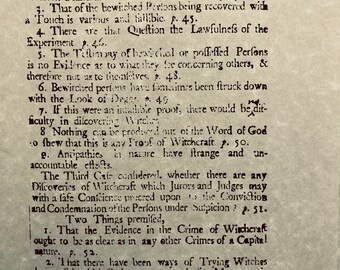 3. That of the bewitched Persons being recovered with
a Touch is various and fallible. p. 45.
4 There are that Question the Lawfulness of the
Experiment p. 46.
5. The Testimony of bewitched or possessed Persons
is no Evidence as to what they see concerning others, &
therefore not as to themselves. p. 48.
6. Bewitched persons have sometimes been struck down
with the Look of Dogs. p. 49
7. If this were an infallible proof, there would be dif-
ficulty in discovering Witches
8 Nothing can be produced out of the Word of God
to shew that this is any Proof of Witchcraft. p. 50.
9. Antipathies in nature have strange and un-
accountable effects.
The Third Case considered, whether there are any
Discoveries of Witchcraft which Jurors and Judges may
with a safe Conscience proceed upon to the Conviction
and Condemnation of the Persons under Suspicion? p. 51.
Two Things premised,
1. That the Evidence in the Crime of Witchcraft
ought to be as clear as in any other Crimes of a Capital
nature. p. 52.
2. That there have been ways of Trying Witches